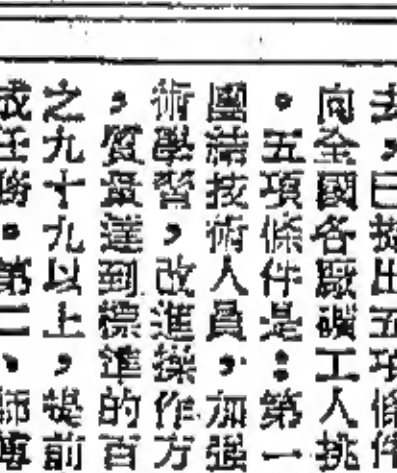 去，已提出五項條件
向全國各廠礦工人挑
。五項條件是：第一
團結技術人員，加强
術學習，改進操作方
，質量達到標準的百
之九十九以上，提前
成任務。第二、師傅